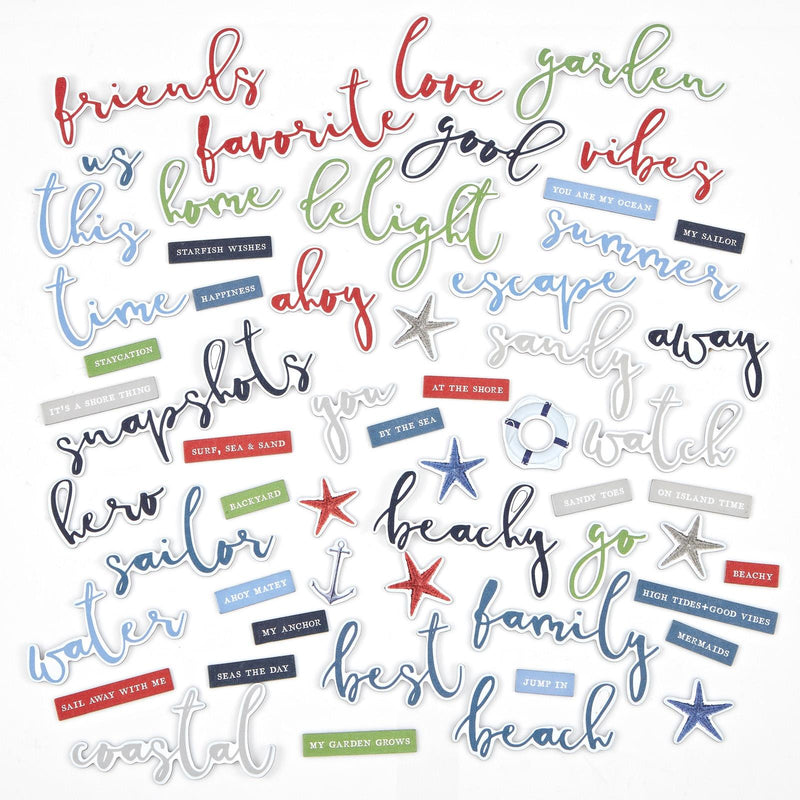 friends
love
garden
favorite
good
vibes
us
this
home
delight
YOU ARE MY OCEAN
MY SAILOR
STARFISH WISHES
summer
time
HAPPINESS
ahoy
escape
sandy
away
STAYCATION
snapshots
IT'S A SHORE THING
you
AT THE SHORE
BY THE SEA
watch
SURF, SEA & SAND
hero
BACKYARD
beachy
SANDY TOES
ON ISLAND TIME
sailor
go
BEACHY
AHOY MATEY
HIGH TIDES+GOOD VIBES
water
MY ANCHOR
family
MERMAIDS
SEAS THE DAY
best
JUMP IN
SAIL AWAY WITH ME
beach
coastal
MY GARDEN GROWS